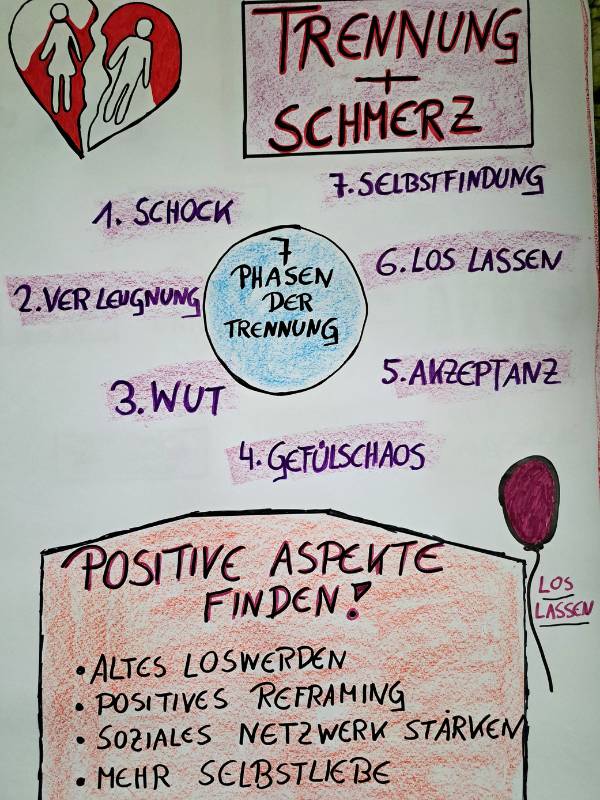 TRENNUNG
+
SCHMERZ
7
PHASEN
DER
TRENNUNG
1. SCHOCK
2. VERLEUGNUNG
3. WUT
4. GEFÜLSCHAOS
5. AKZEPTANZ
6. LOS LASSEN
7. SELBSTFINDUNG
POSITIVE ASPEKTE
FINDEN!
• ALTES LOSWERDEN
• POSITIVES REFRAMING
• SOZIALES NETZWERK STÄRKEN
• MEHR SELBSTLIEBE
LOS
LASSEN